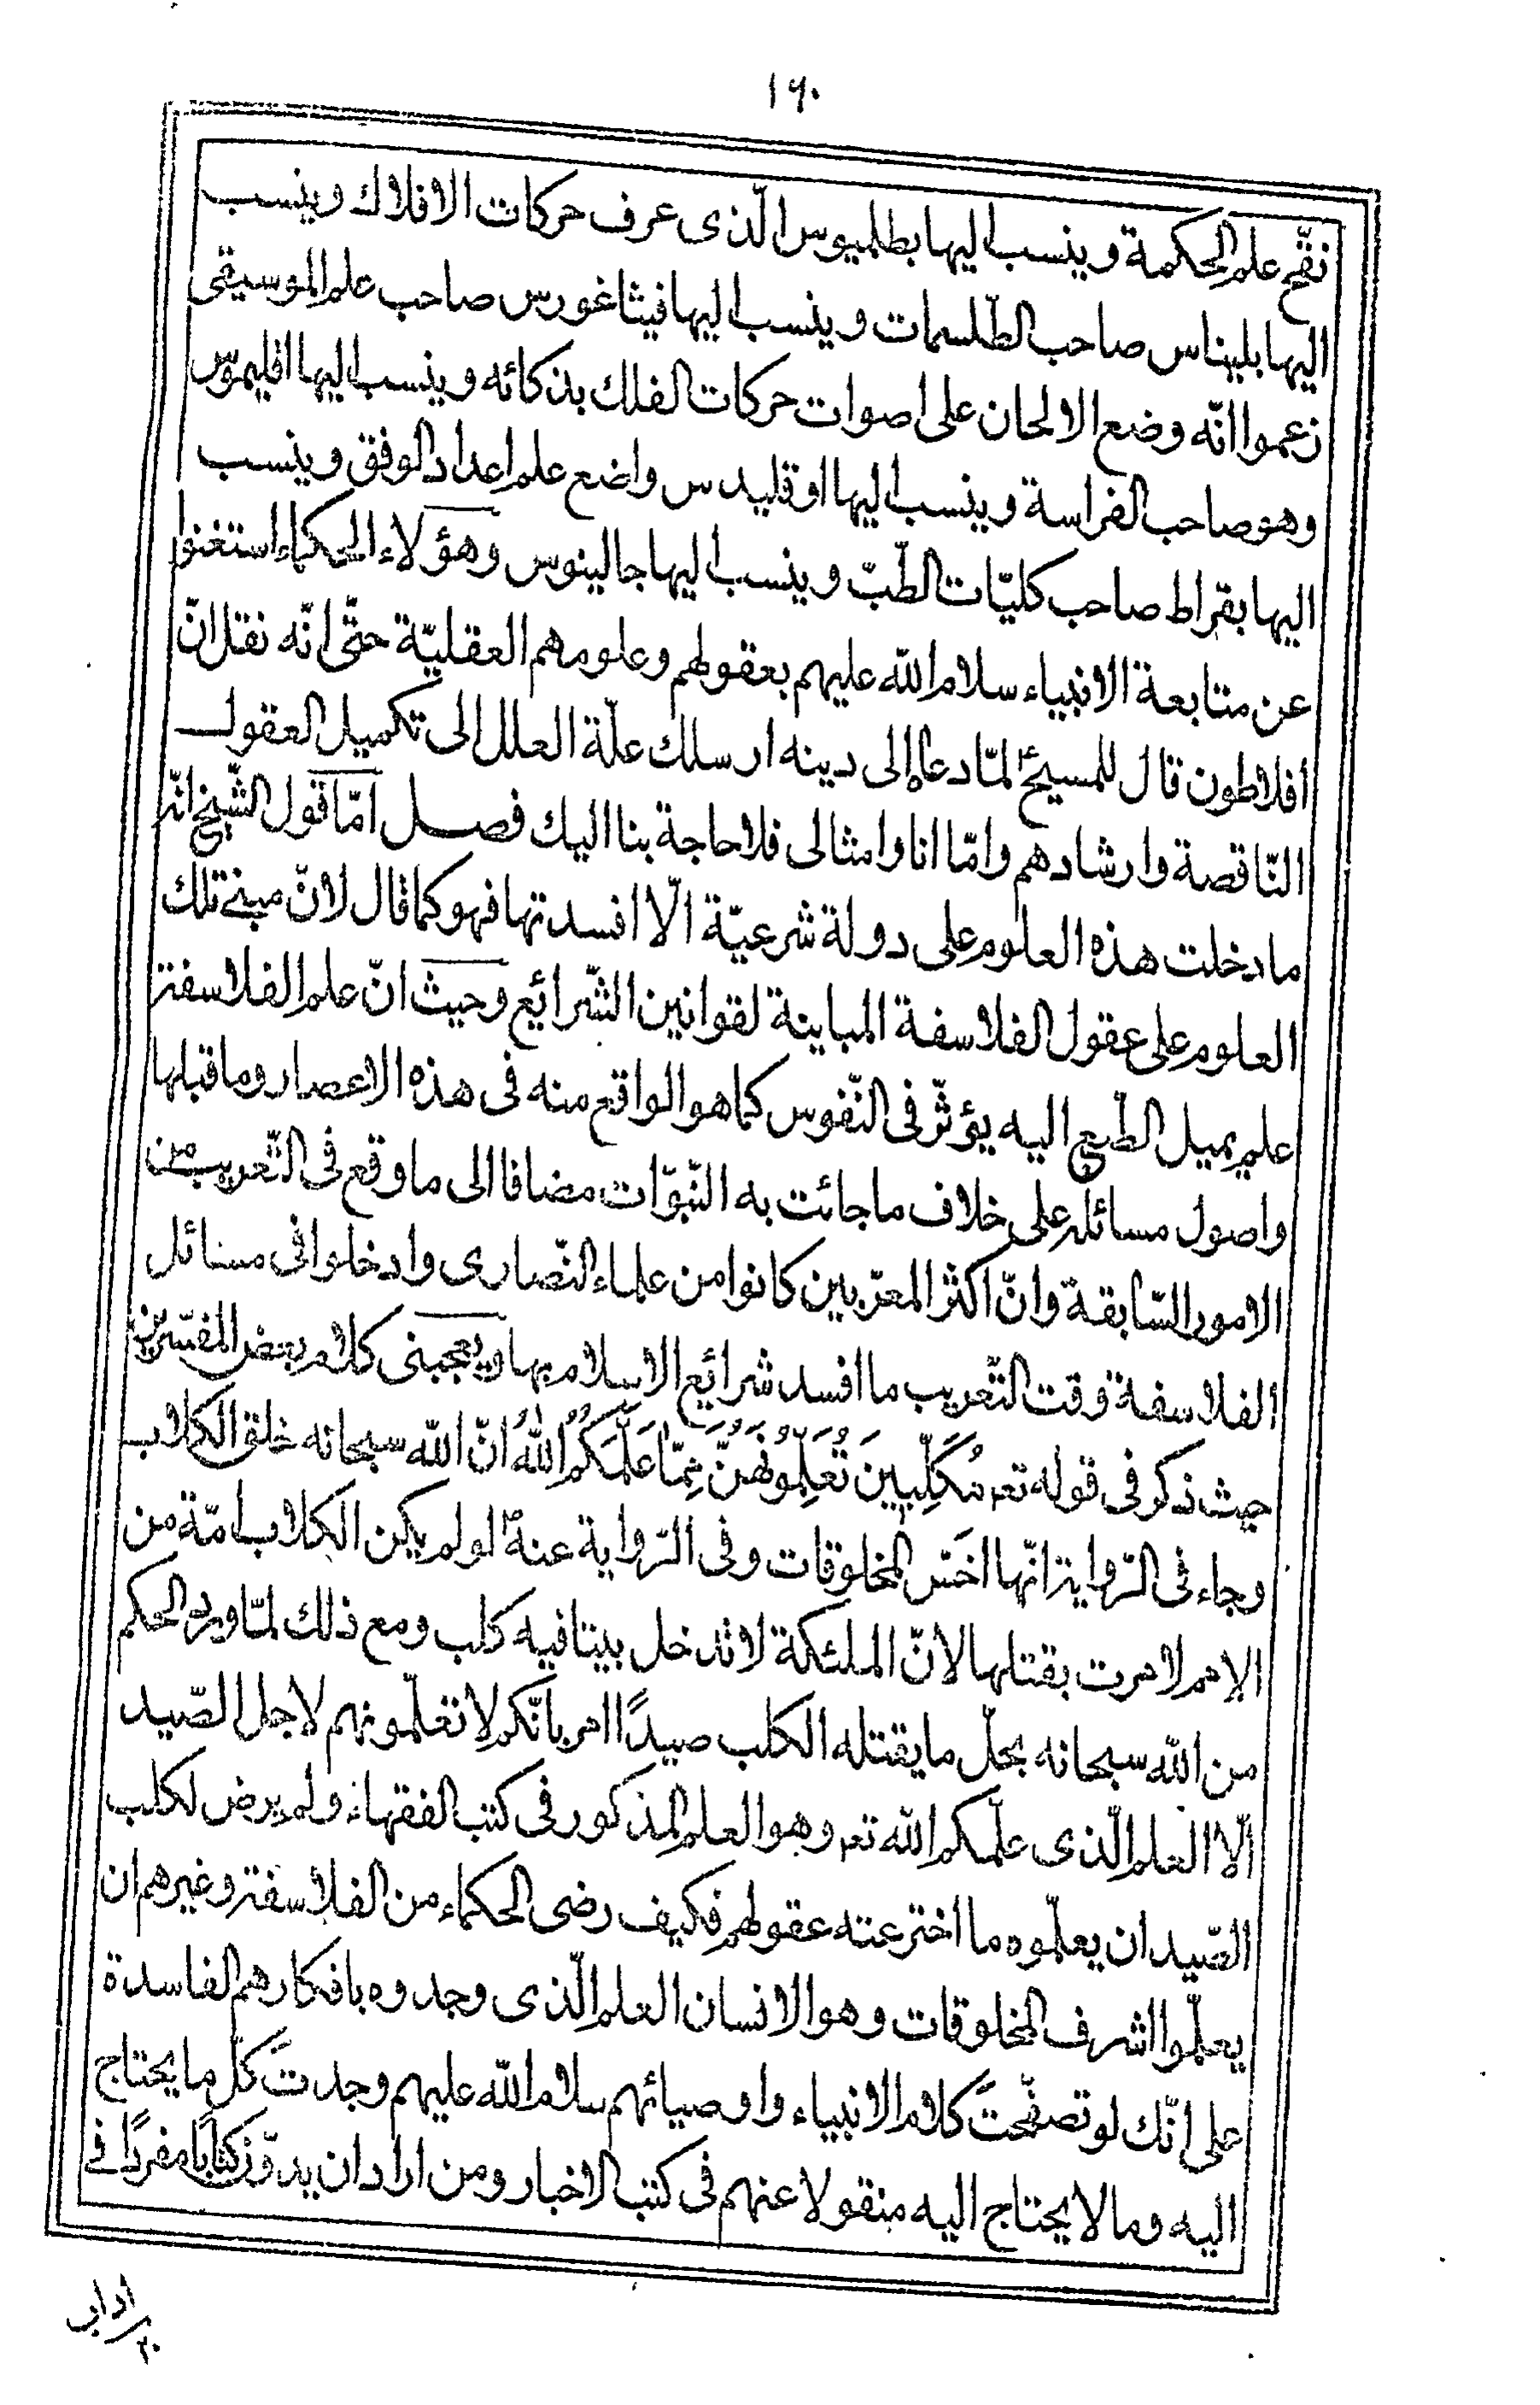 ١٦٠
نقّح علم الحكمة وينسب اليها بطلميوس الّذى عرف حركات الافلاك وينسب
اليها بليناس صاحب الطّلسمات وينسب اليها فيثاغورس صاحب علم الموسيقى
زعموا انّه وضع الالحان على اصوات حركات الفلك بذكائه وينسب اليها اقليموس
وهو صاحب الفراسة وينسب اليها اوقليدس واضع علم اعداد الوفق وينسب
اليها بقراط صاحب كليّات الطّبّ وينسب اليها جالينوس وهؤلاء الحكماء استغنوا
عن متابعة الانبياء سلام اللّه عليهم بعقولهم وعلومهم العقليّة حتّى انّه نقل انّ
أفلاطون قال للمسيحؑ لمّا دعاه إلى دينه ارسلك علّة العلل الى تكميل العقول
النّاقصة وارشادهم وامّا انا وامثالى فلا حاجة بنا اليك فصل امّا قول الشّيخ انّه
ما دخلت هذه العلوم على دولة شرعيّة الّا افسدتها فهو كما قال لانّ مبنى تلك
العلوم على عقول الفلاسفة المباينة لقوانين الشّرائع وحيث انّ علم الفلاسفة
علم يميل الطّبع اليه يؤثّر فى النّفوس كما هو الواقع منه فى هذه الاعصار وما قبلها
واصول مسائله على خلاف ما جائت به النّبوّات مضافا الى ما وقع فى التّعريب من
الامور السّابقة وانّ اكثر المعرّبين كانوا من علماء النّصارى وادخلوا فى مسائل
الفلاسفة وقت التّعريب ما افسد شرائع الاسلام بها ويعجبنى كلام بعض المفسّرين
حيث ذكر فى قوله تعہ مُكَلِّبِينَ تُعَلِّمُونَهُنَّ مِمّا عَلَّمَكُمُ اللّهُ انّ اللّه سبحانه خلق الكلاب
وجاء فى الرّواية انّها اخَسّ المخلوقات وفى الرّواية عنهؑ لو لم يكن الكلاب امّة من
الامم لامرت بقتلها لانّ الملئكة لا تدخل بيتا فيه كلب ومع ذلك لمّا ورد الحكم
من اللّه سبحانه بحلّ ما يقتله الكلب صيدًا امر بانّكم لا تعلّمونهم لاجل الصّيد
الّا العلم الّذى علّمكم اللّه تعہ وهو العلم المذكور فى كتب الفقهاء ولم يرض لكلب
الصّيد ان يعلّموه ما اخترعته عقولهم فكيف رضى الحكماء من الفلاسفة وغيرهم ان
يعلّموا اشرف المخلوقات وهو الانسان العلم الّذى وجدوه بافكارهم الفاسدة
على انّك لو تصفّحتَ كلام الانبياء واوصيائهم سلام اللّه عليهم وجدتَ كلّ ما يحتاج
اليه وما لا يحتاج اليه منقولا عنهم فى كتب الاخبار ومن اراد ان يدوّن كتابًا مفردًا فى